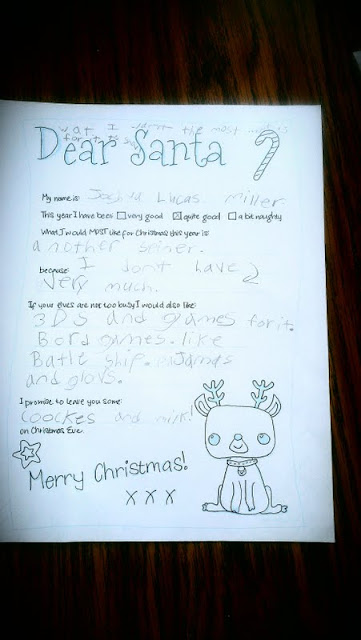 wat I want the most
for
Dear Santa
My name is: Joshua Lucas. Miller.
This year I have been very good quite good a bit naughty
What I would MOST like for Christmas this year is:
another
because: I don't have 2
very much.
If your elves are not too busy I would also like:
3DS and games for it.
Bord games. like
Batle ship. PJJamas
and glovs.
I promise to leave you some:
coockes and milk!
on Christmas Eve.
Merry Christmas!
X X X